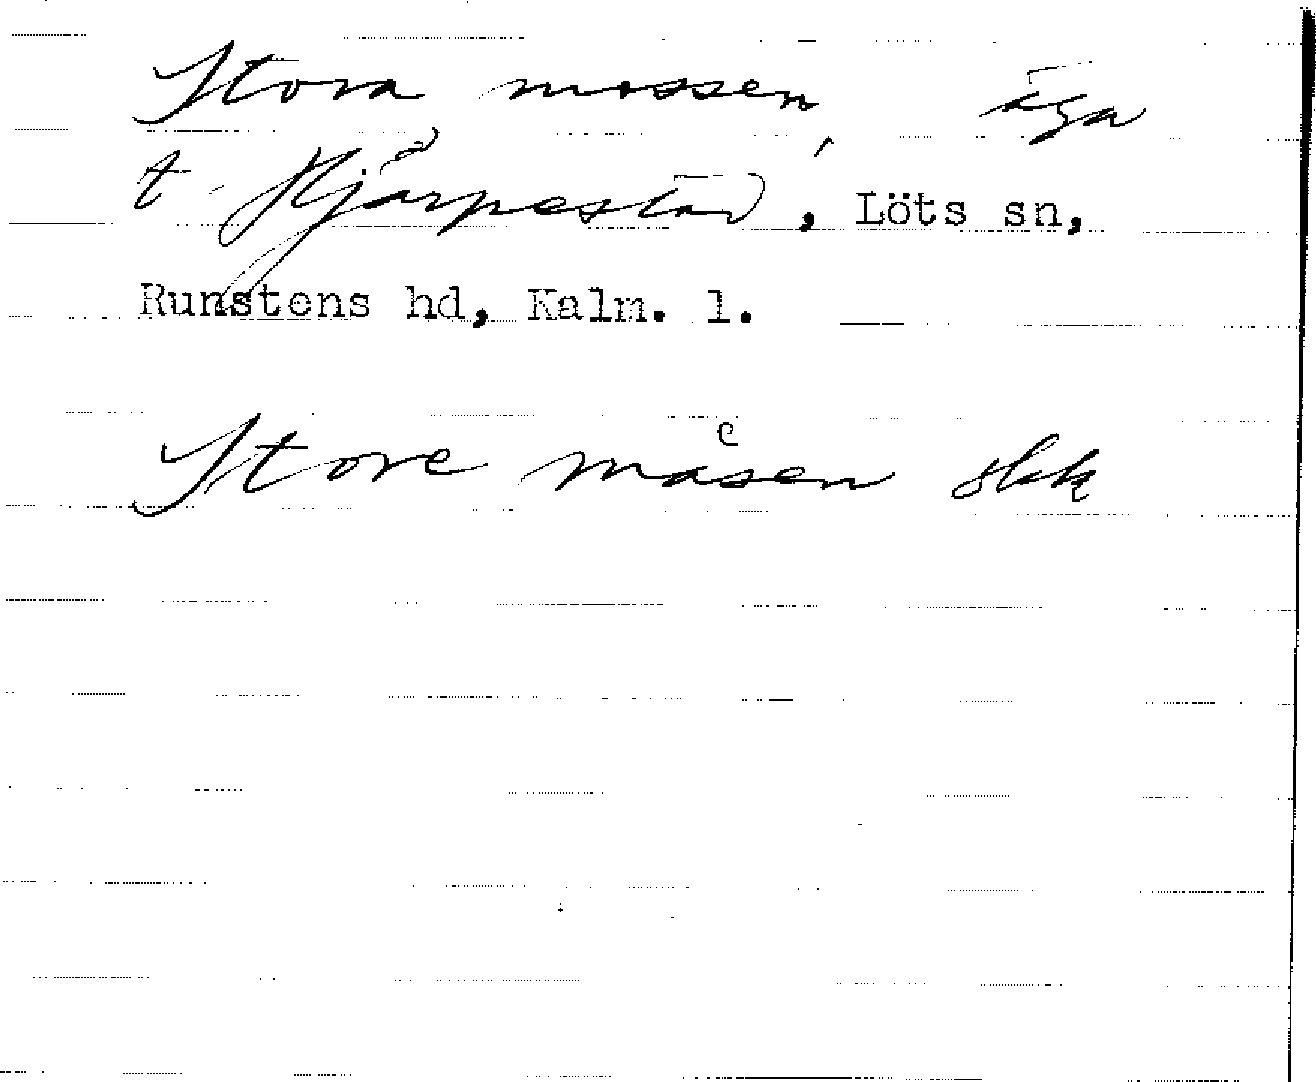 Stora mossen, äga
t. Hjärpestad, Löts sn,
Runstens hd, Kalm. l.
Store måsen